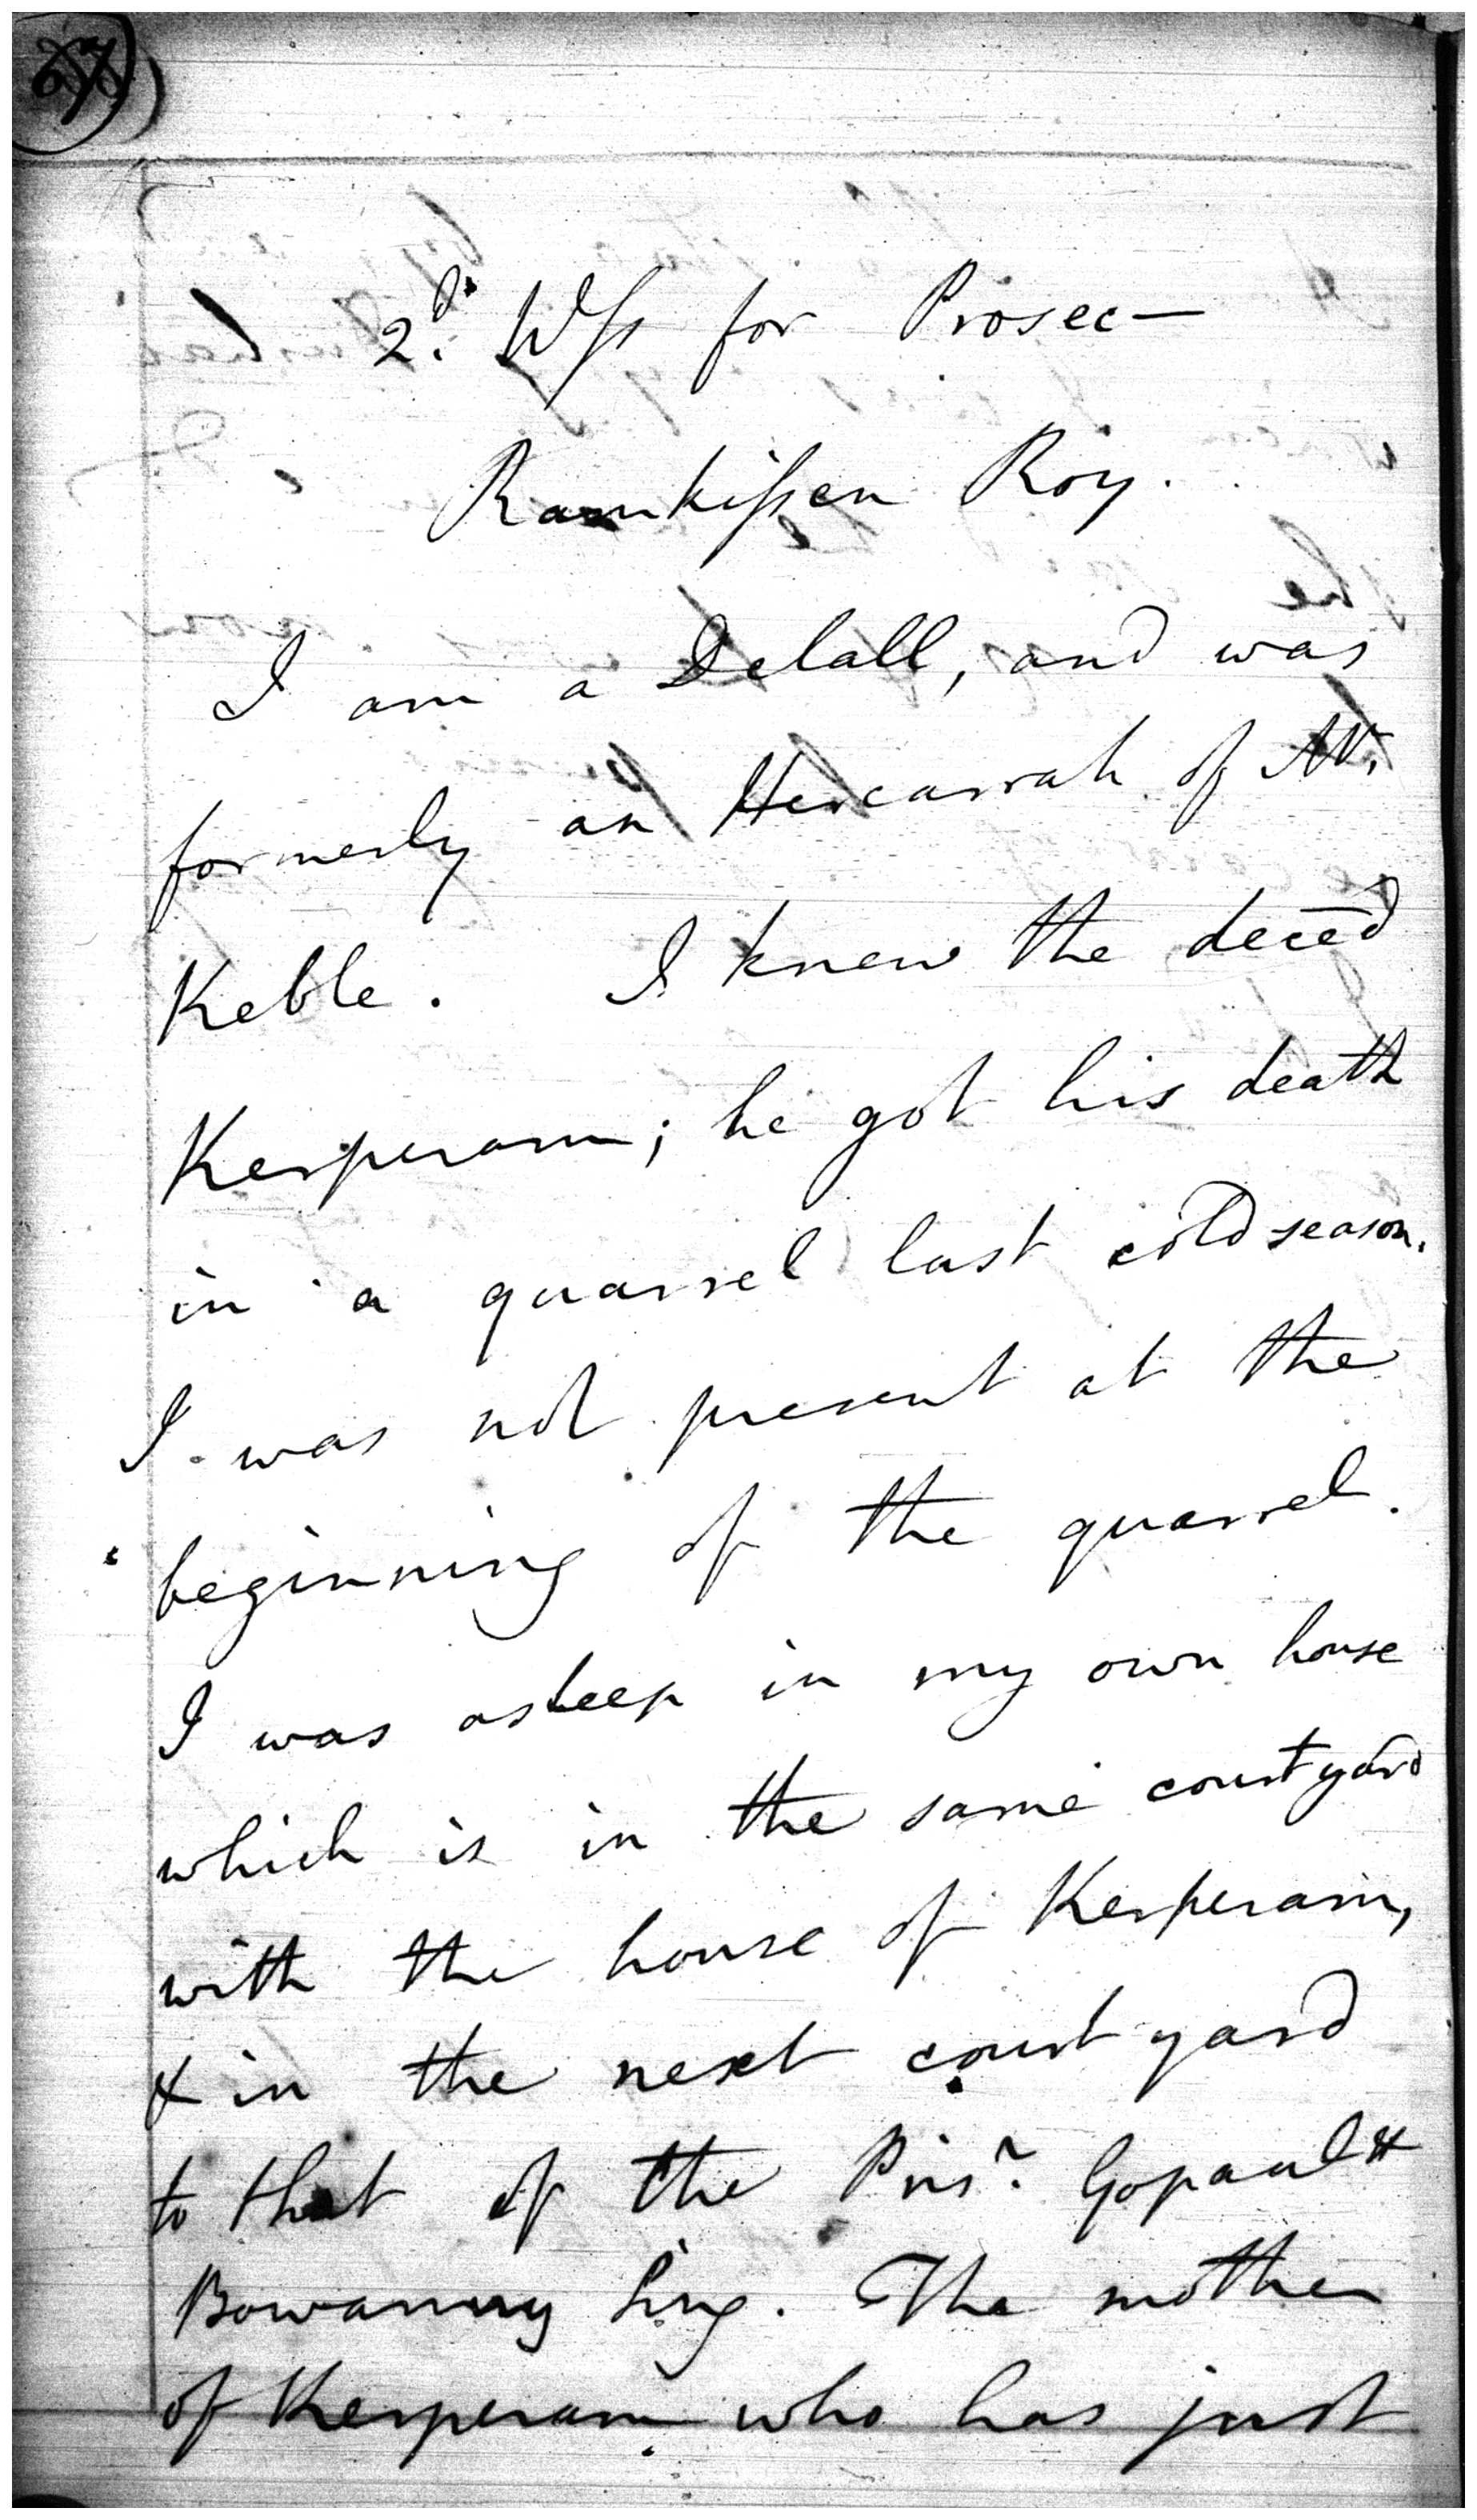 2d. Wss for Prosec—
Ramkissen Roy.
I am a Delall, and was
formerly an Hercarrah of Mr.
Keble. I knew the deced
Kerperam; he got his death
in a quarrel last cold season.
I was not present at the
beginning of the quarrel.
I was asleep in my own house
which is in the same courtyard
with the house of Kerperam,
& in the next court yard
to that of the Prisr. Gopaul &
Bowanny Sing. The mother
of Kerperam who has just